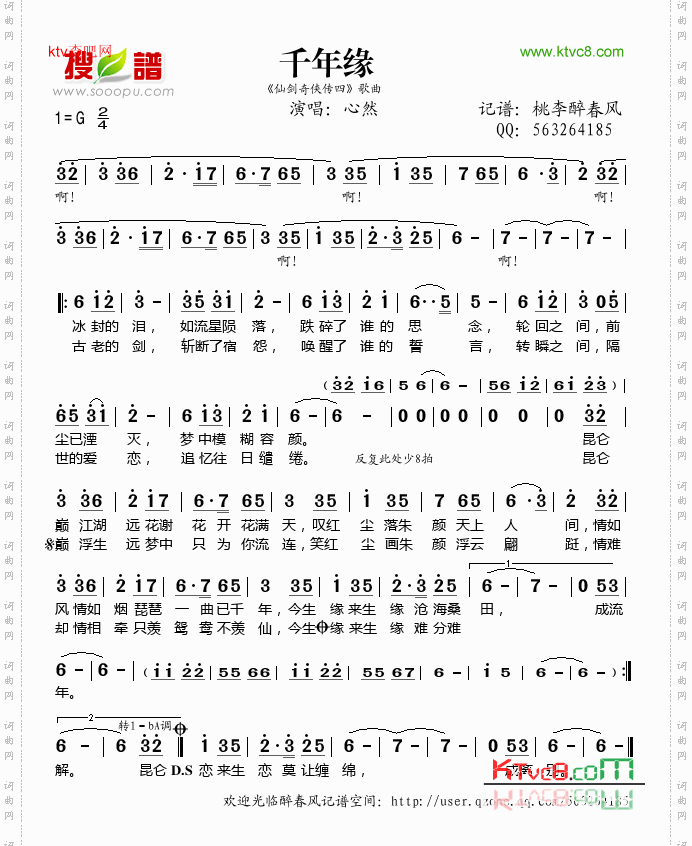 ktv查吧网
搜 谱
www.sooopu.com
千年缘
《仙剑奇侠传四》歌曲
演唱：心然
www.ktvc8.com
记谱：桃李醉春风
QQ: 563264185
1=G 2/4
3 2 | 3 3 6 | 2 · 1 7 | 6 · 7 6 5 | 3 3 5 | 1 3 5 | 7 6 5 | 6 · 3 | 2 3 2 |
啊！ 啊！ 啊！
3 3 6 | 2 · 1 7 | 6 · 7 6 5 | 3 3 5 | 1 3 5 | 2 · 3 2 5 | 6 - | 7 - | 7 - |
啊！ 啊！
‖: 6 1 2 | 3 - | 3 5 3 1 | 2 - | 6 1 3 | 2 1 | 6 · · 5 | 5 - | 6 1 2 | 3 0 5 |
冰封的 泪， 如流星陨 落， 跌碎了 谁的 思 念， 轮回之 间，前
古老的 剑， 斩断了宿 怨， 唤醒了 谁的 誓 言， 转瞬之 间，隔
（3 2 1 6 | 5 6 | 6 - | 5 6 1 2 | 6 1 2 3）
6 5 3 1 | 2 - | 6 1 3 | 2 1 | 6 - | 6 - | 0 0 | 0 0 | 0 0 | 0 3 2 |
尘已湮 灭， 梦中模 糊容 颜。 昆仑
世的爱 恋， 追忆往 日缱 绻。 反复此处少8拍 昆仑
3 3 6 | 2 1 7 | 6 · 7 6 5 | 3 3 5 | 1 3 5 | 7 6 5 | 6 · 3 | 2 3 2 |
巅 江湖 远 花谢 花 开 花满 天，叹红 尘 落朱 颜 天上 人 间，情如
8巅 浮生 远 梦中 只 为 你流 连，笑红 尘 画朱 颜 浮云 翩 跹，情难
3 3 6 | 2 1 7 | 6 · 7 6 5 | 3 3 5 | 1 3 5 | 2 · 3 2 5 | 1 6 - | 7 - | 0 5 3 |
风 情如 烟 琵琶 一 曲已千 年，今生 缘 来生 缘 沧海桑 田， 成流
却 情相 牵 只羡 鸳 鸯不羡 仙，今生 缘来生 缘 难分难
6 - | 6 - | （1 1 2 2 | 5 5 6 6 | 1 1 2 2 | 5 5 6 7 | 6 - | 1 5 | 6 - | 6 - ）:‖
年。
2
转1=bA调
6 - | 6 3 2 ‖ 1 3 5 | 2 · 3 2 5 | 6 - | 7 - | 7 - | 0 5 3 |
解。 昆仑 D.S 恋来生 恋 莫让缠 绵，
KTvc8.com
欢迎光临醉春风记谱空间：http://user.qzone.qq.com/563264185
词曲网